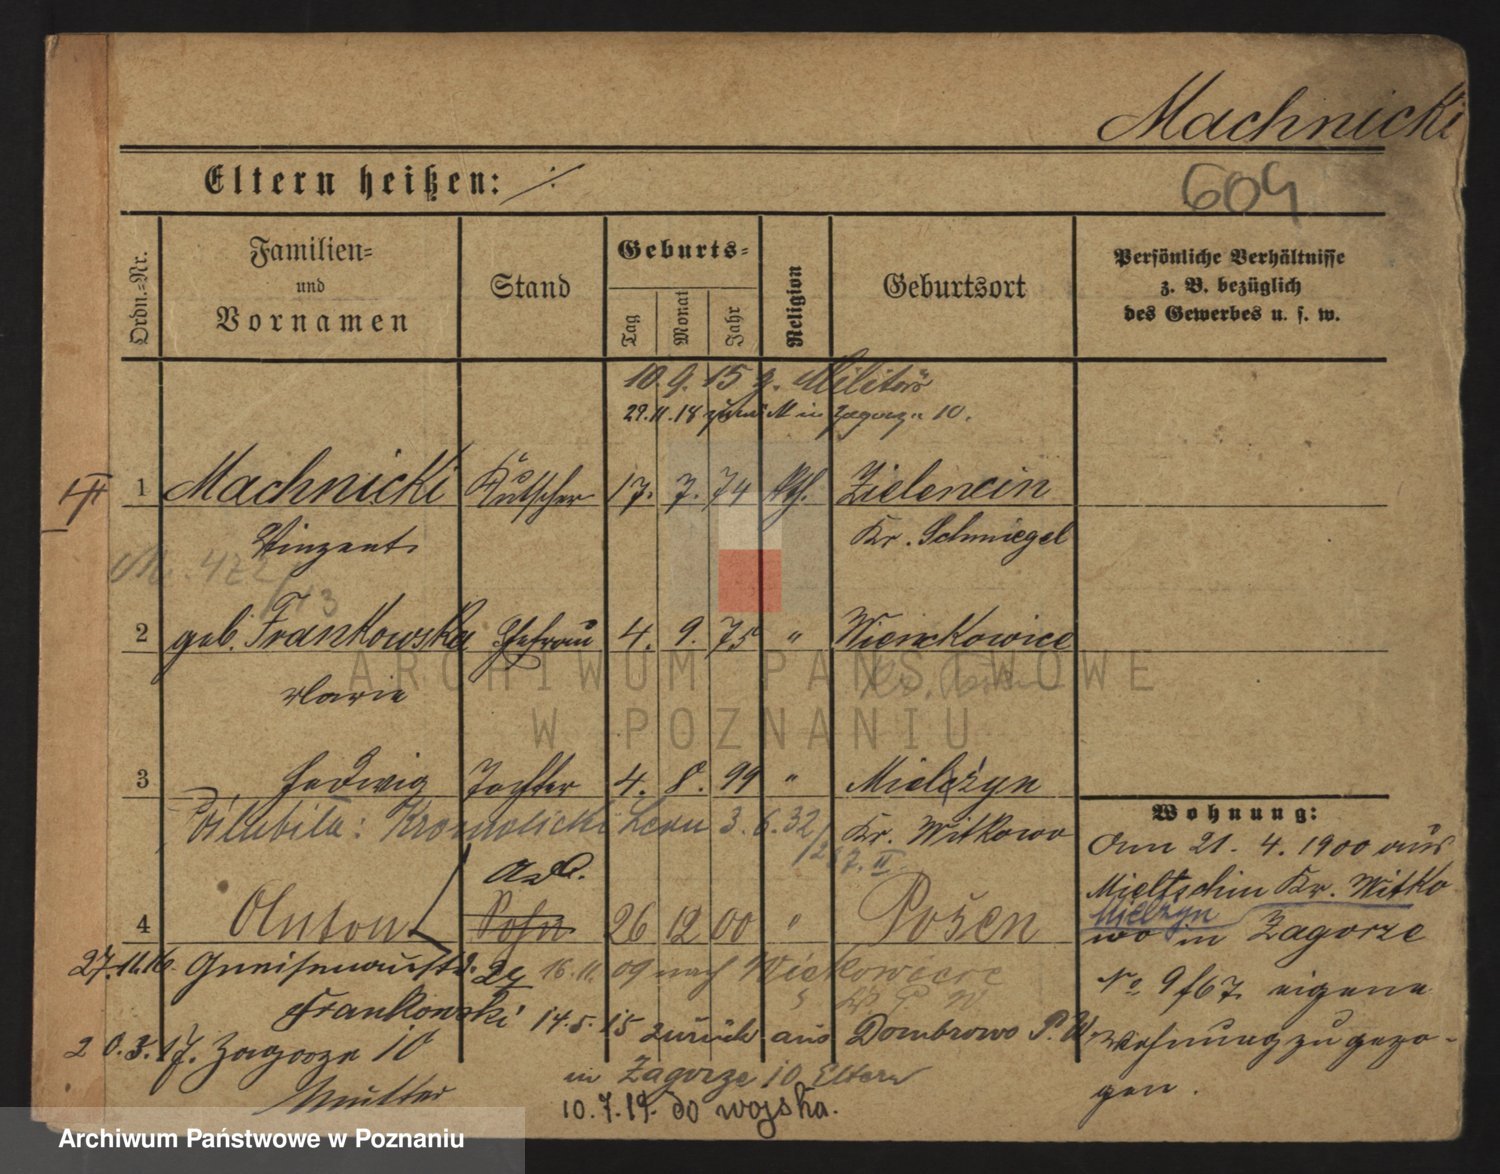 Machnicki
Eltern heißen: ./.
609
Ordn.=Nr.
Familien= und Vornamen
Stand
Geburts=
Tag
Monat
Jahr
Religion
Geburtsort
Persönliche Verhältnisse
z. B. bezüglich
des Gewerbes u. s. w.
10. 9. 15 z. Militär
29. 11. 18 zurück in Zagorze 10.
1 Machnicki Kutscher 17. 7. 74 kth. Zielencin
Vinzent Kr. Schmiegel
2 geb. Frankowska Ehefrau 4. 9. 75 " Wienckowice
Marie
3 Hedwig Tochter 4. 8. 99 " Mielzyn
Kr. Witkowo
3. 6. 32
Ad.
4 Anton Sohn 26 12 00 " Posen
27. 11. 16. Gneisenaustr.
16. 11. 09 nach Wickowiece
Frankowski 14. 5. 15 zurück aus Dombrowo P. W
20. 3. 17. Zagorze 10
in Zagorze 10 Eltern
Mutter
10. 7. 19. do wojska.
Wohnung:
Am 21. 4. 1900 aus
Mieltschin Kr. Witko
Mielzyn
wo in Zagorze
No 9 f67 eigene
Wohnung zugezo-
gen.
ARCHIWUM PAŃSTWOWE
W POZNANIU
Archiwum Państwowe w Poznaniu